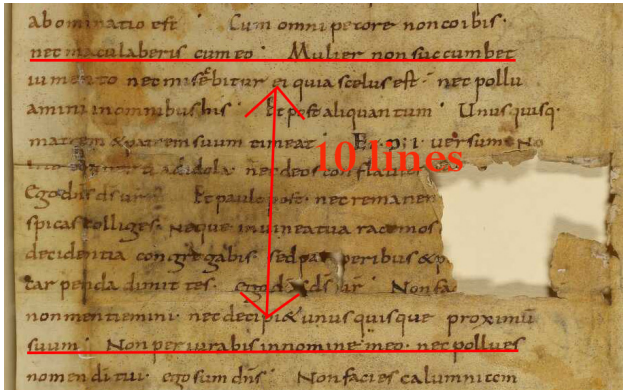 abominatio est · Cum omni petore non coibis ·
nec maculaberis cum eo · Mulier non succumbet
iumento nec miscebitur ei quia scelus est · nec pollu
amini in omnibus his · Et post aliquantum · Unusquisq·
matrem & patrem suum timeat · Et · p: i: versum No
ad idola · nec deos conflati
Ego dns ds vr · Et paulo post · nec remanen
spicas colliges · Neque in vinea tua racemos
decidentia congregabis · sed pauperibus & p
car penda dimittes · ego dns ds vr · Non fa
non mentiemini · nec decipi& unusquisque proximu
suum · Non periurabis in nomine meo · nec pollues
nomen di tui · ego sum dns · Non facies calumniem
10 lines